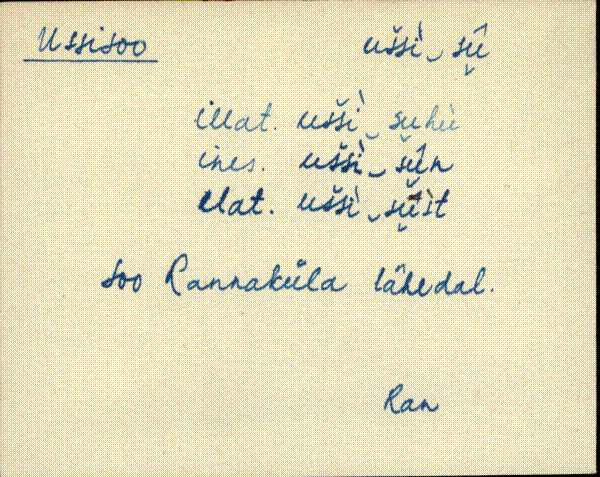 Ussisoo uššì‿sṷ̄̀
illat. uššì‿suhù
ines. uššì‿sṷ̄̀n
elat. uššì‿sṷ̄ìt
Soo Rannaküla lähedal.
Ran